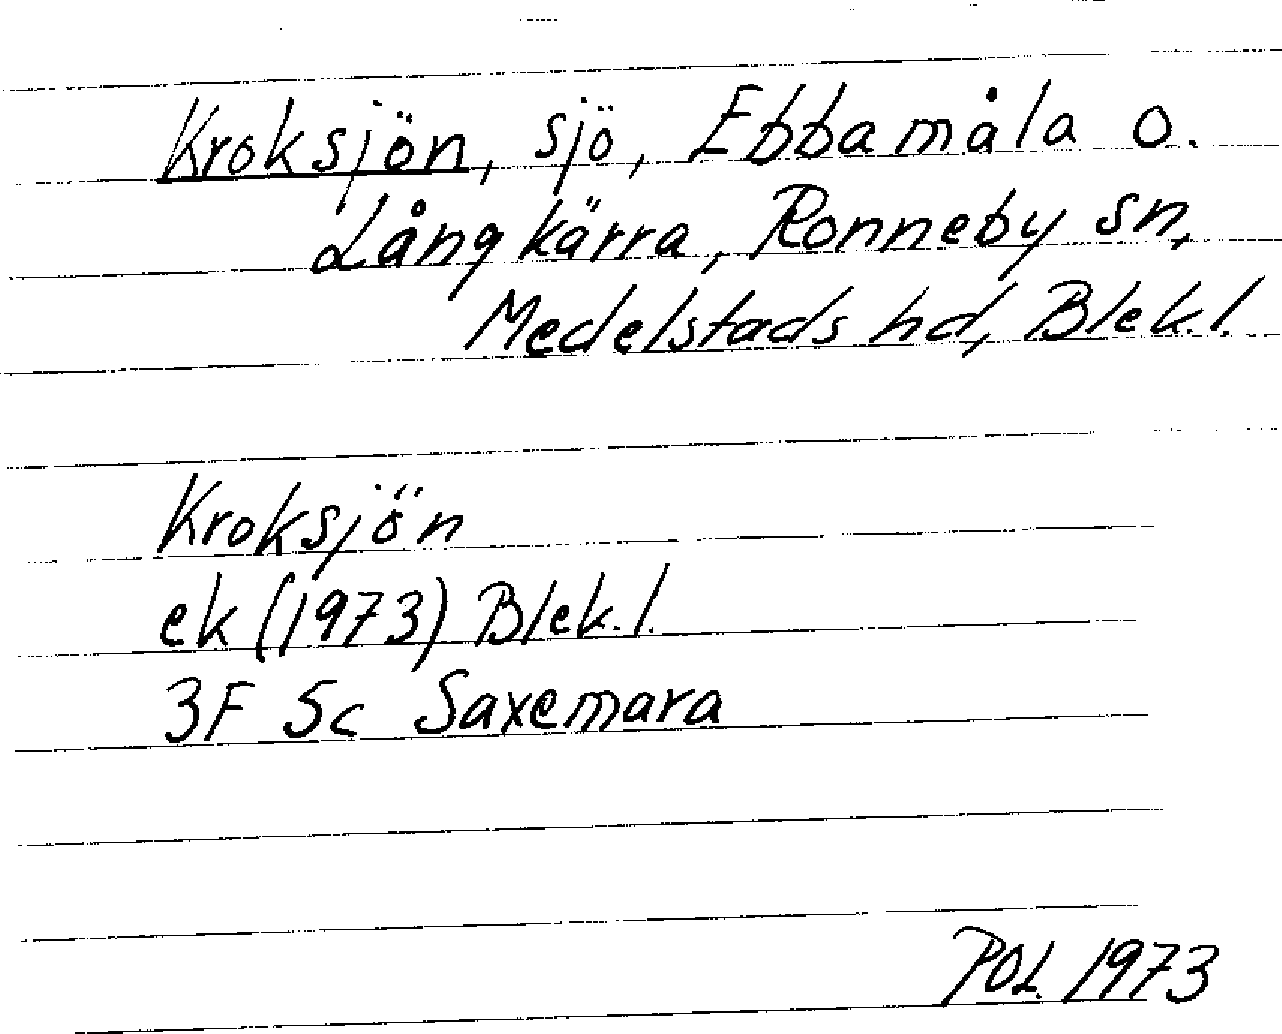 Kroksjön, sjö, Ebbamåla o.
Långkärra, Ronneby sn,
Medelstads hd, Blek.l.
Kroksjön
ek (1973) Blek.l.
3F 5c Saxemara
POL 1973